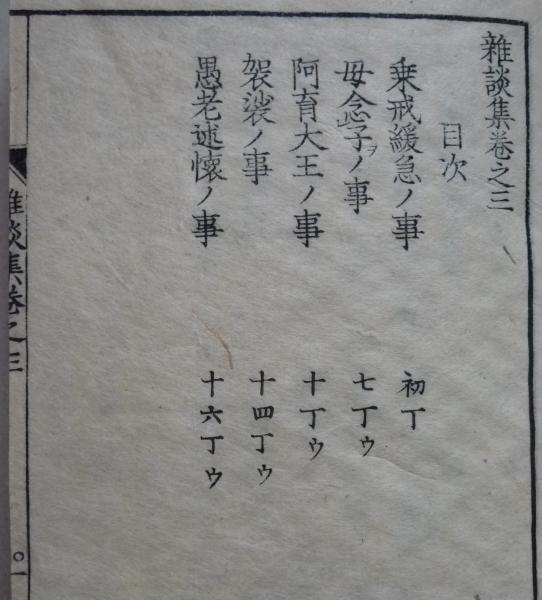 雜談集卷之三
目次
乗戒緩急ノ事 初丁
母念子ヲノ事 七丁ウ
阿育大王ノ事 十丁ウ
袈裟ノ事 十四丁ウ
愚老述懷ノ事 十六丁ウ
雜談集卷之三
○一